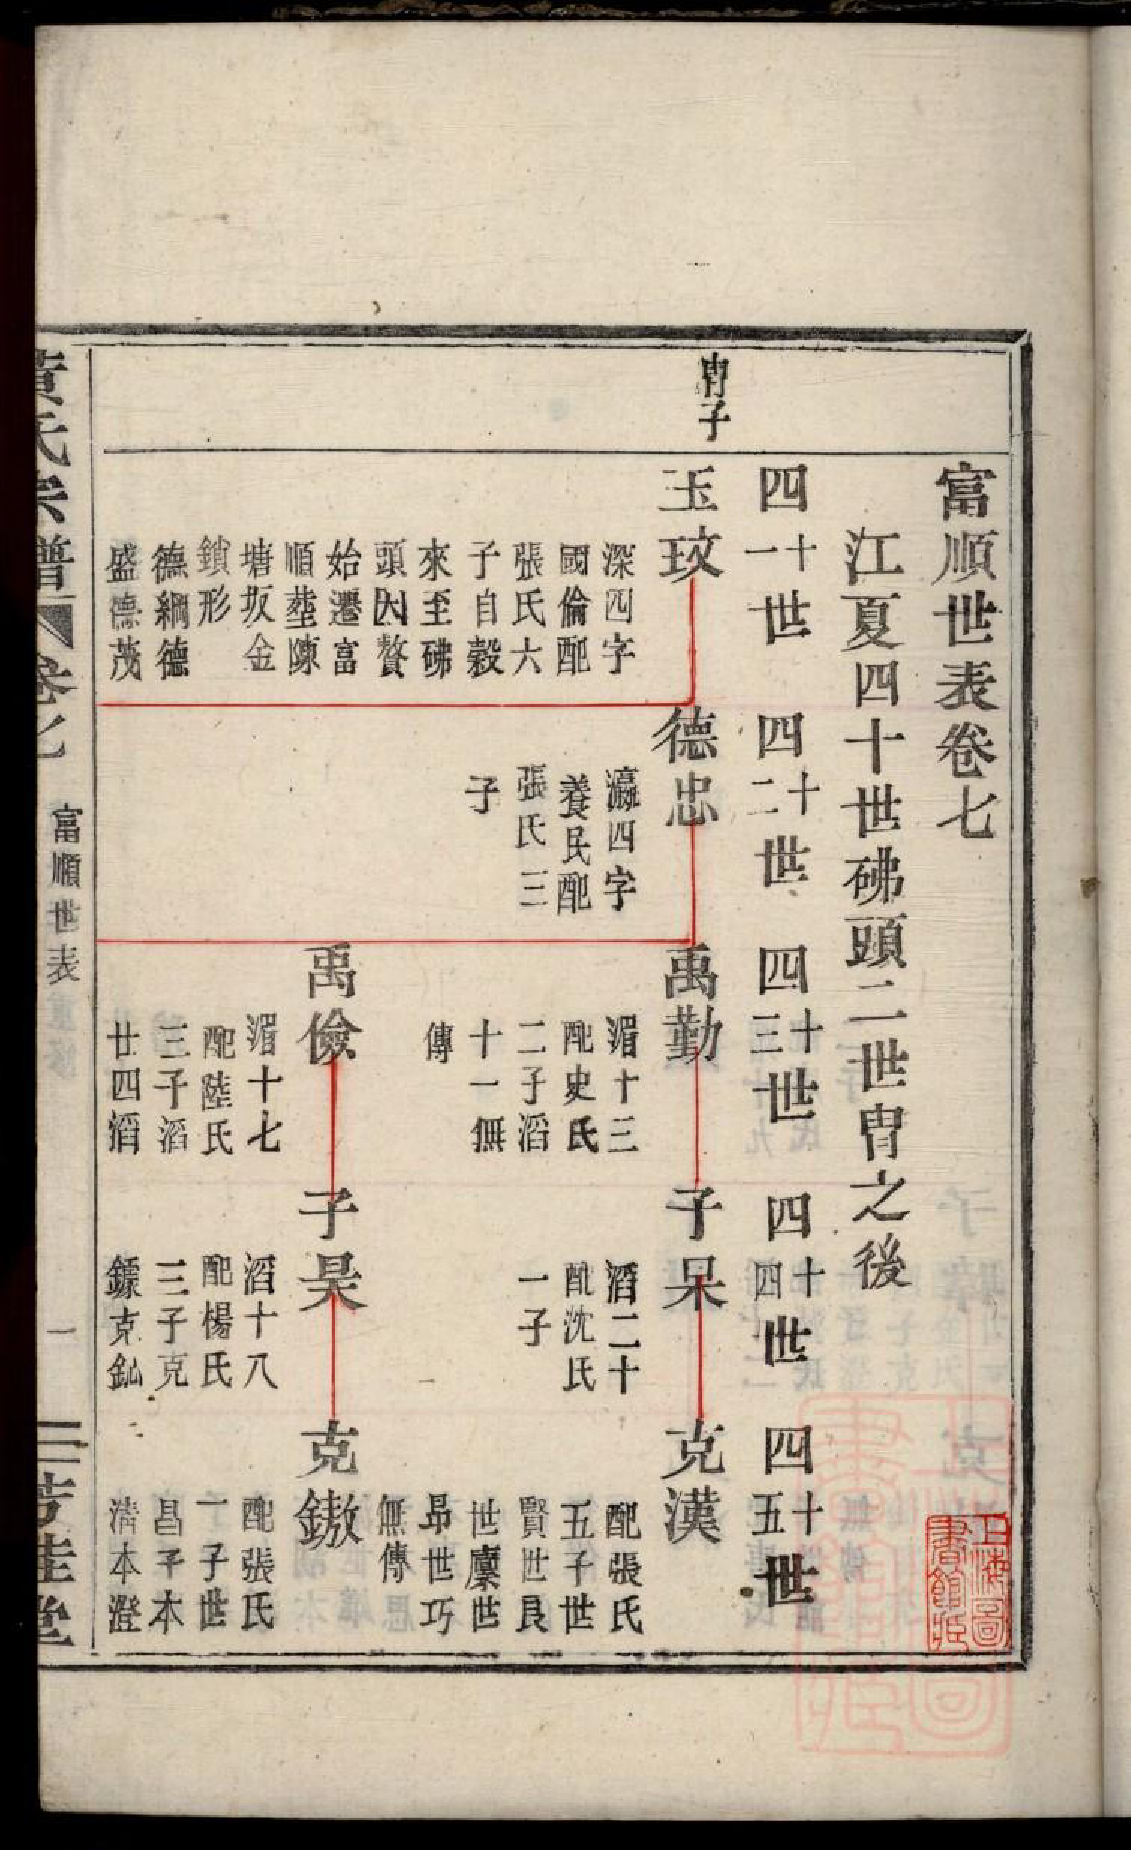 富順世表卷七
江夏四十世砩頭二世冑之後
四十一世
四十二世
四十三世
四十四世
四十五世
冑子
玉玟
深四字
國倫配
張氏六
子自穀
來至砩
頭因贅
始遷富
順塟陳
塘坂金
鎖形
德綱德
盛德茂
德忠
瀛四字
養民配
張氏三
子
禹勤
湄十三
配史氏
二子滔
十一無
傳
子杲
滔二十
配沈氏
一子
克漢
配張氏
五子世
賢世良
世麇世
昂世巧
無傳
禹儉
湄十七
配陸氏
三子滔
廿四滔
子昊
滔十八
配楊氏
三子克
鏢克釓
克鏾
配張氏
一子世
昌子本
清本澄
黃氏宗譜
卷七
富順世表
一
芳桂堂
上海圖書館藏